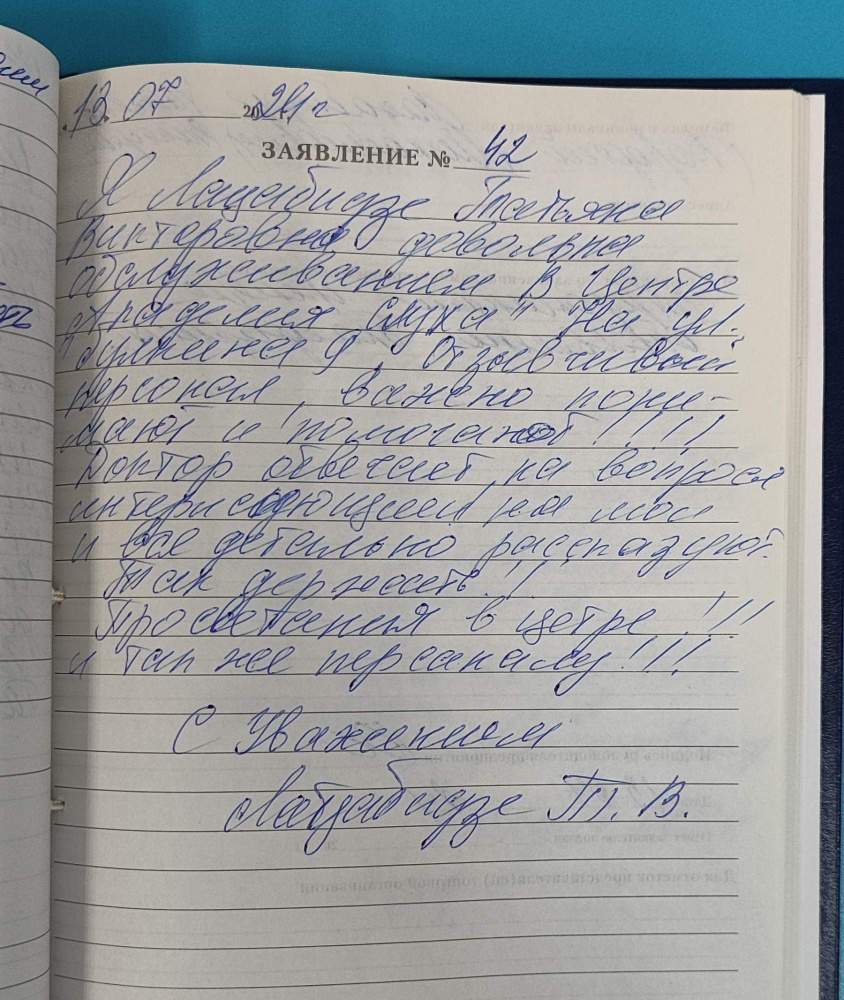 13. 07 2021 г
ЗАЯВЛЕНИЕ № 42
Я Лацабидзе Татьяна
Викторовна довольна
обслуживанием в Центре
"Академия Слуха" На ул.
9, Отзывчивый
персонал, важено пони-
мают и помогают!!!!
Доктор отвечает на вопросы
интерисующиеи на мои
и все детально рассказуют.
Так держать!!
Просветания в цетре!!!
и так же персаналу!!!
С Уважением
Лацабидзе Т. В.